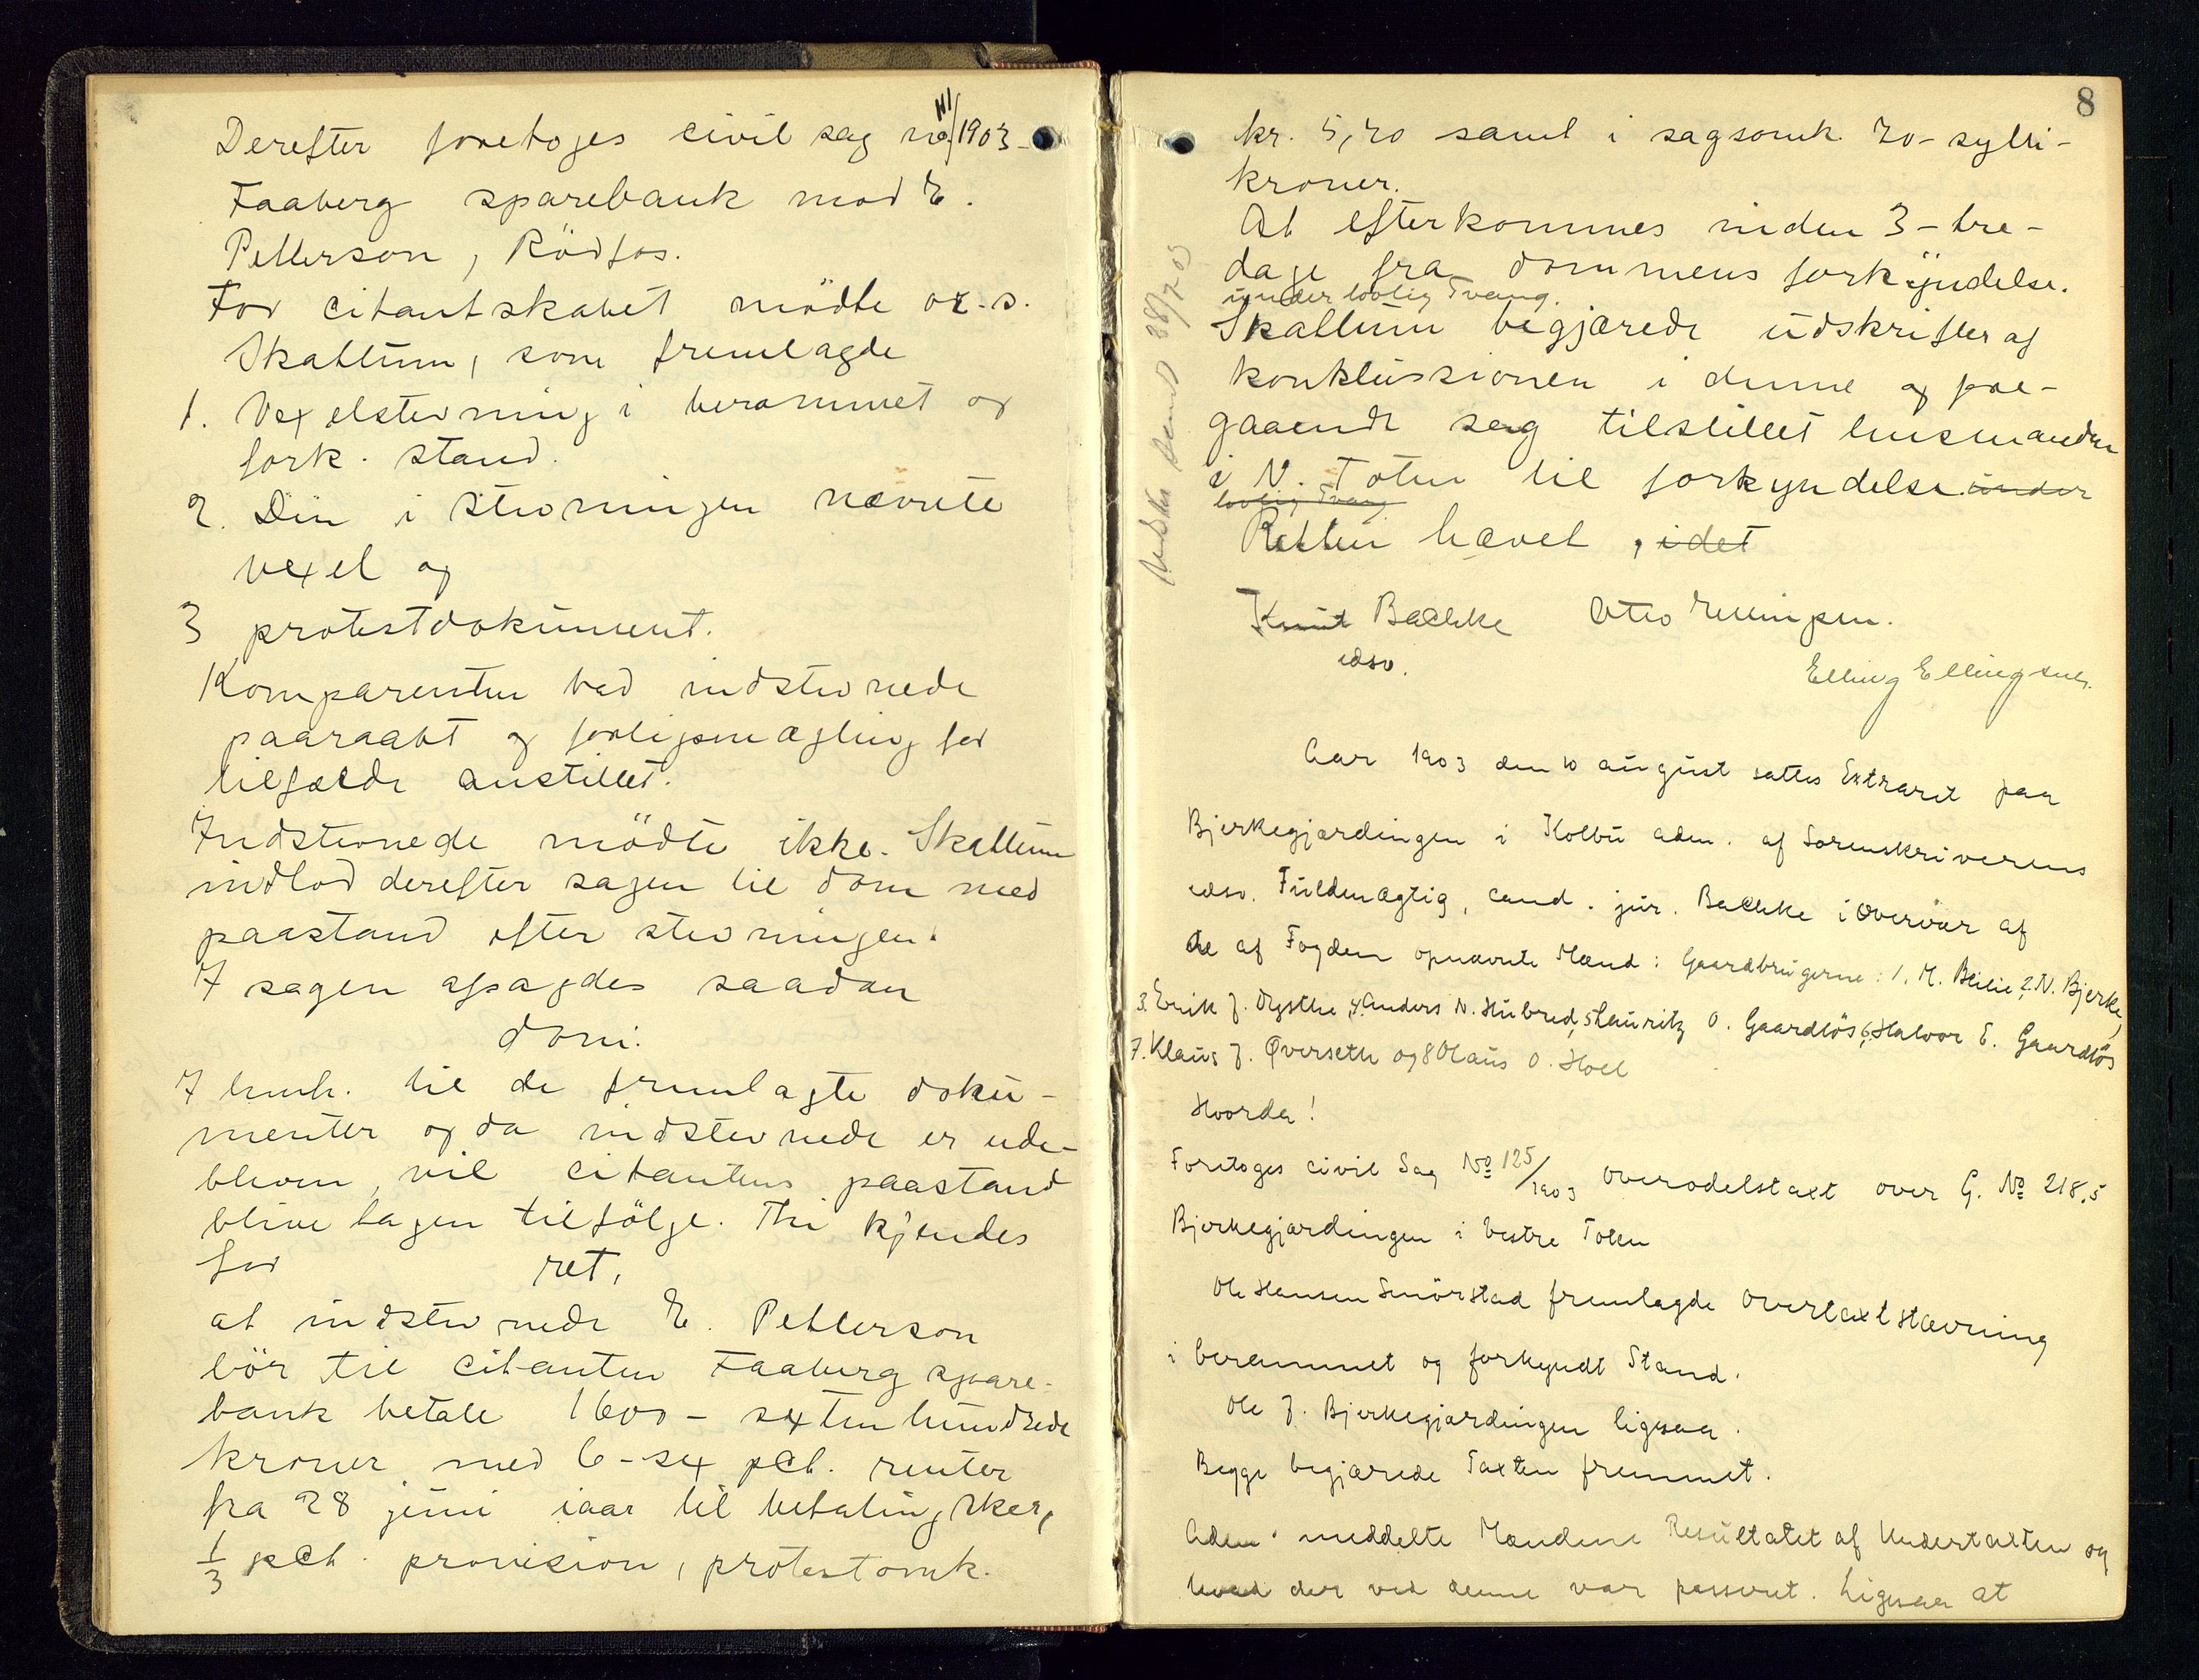 Derefter foretoges civil sag no 111/1903
Faaberg sparebank mod E.
Petterson, Rödfos.
For citantskabet mödte o.r.s.
Skattum, som fremlagde
1. Vexelstevning i berammet og
fork. stand.
2. Den i stevningen nævnte
vexel og
3 protestdokument.
Komparenten bad indstevnede
paaraabt og forligsmægling for
tilfælde anstillet.
Indstevnede mödte ikke. Skattum
indlod derefter sagen til dom med
paastand efter stevningen.
I sagen afsagdes saadan
dom:
I henh. til de fremlagte doku-
menter og da indstevnede er ude-
bleven, vil citantens paastand
blive tagen tilfölge. Thi kjendes
for ret,
at indstevnede E. Petterson
bör til citanten Faaberg spare-
bank betale 1600 - sexten hundrede
kroner med 6 - sex pCt. renter
fra 28 juni iaar til betaling sker,
1/3 pCt. provision, protestomk.
8
kr. 5,20 samt i sagsomk. 20 - tyve -
kroner.
At efterkommes inden 3 - tre -
dage fra dommens forkyndelse.
under lovlig Tvang.
Skattum begjærede udskrifter af
konklussionen i denne og fore-
gaaende sag tilstillet lensmanden
i V. Toten til forkyndelse under
lovlig Tvang
Retten hævet, idet
Knut Bachke Otto Ellingsen.
edsv.
Elling Ellingsen.
Aar 1903 den 10 august sattes Extraret paa
Bjerkegjærdingen i Kolbu adm. af Sorenskriverens
edsv. Fuldmægtig, cand. jur. Bachke i Overvær af
de af Fogden opnævnte Mænd: Gaardbrugerne: 1. M. Blilie, 2. N. Bjerke,
3. Erik J. Dysthe, 4. Anders N. Hubred, 5 Lauritz O. Gaardlös, 6. Halvor E. Gaardlös
7. Klaus J. Øverseth og 8 Olaus O. Hoel
Hvorda!
Foretoges civil Sag No 125/1903 Overodelstaxt over G. No 218,5
Bjerkegjærdingen i Vestre Toten
Ole Hansen Smörstad fremlagde Overtaxtstævning
i berammet og forkyndt Stand.
Ole J. Bjerkegjærdingen ligesaa.
Begge begjærede Taxten fremmet.
Adm. meddelte Mændene Resultatet af Undertaxten og
hvad der ved denne var passeret. Ligesaa at